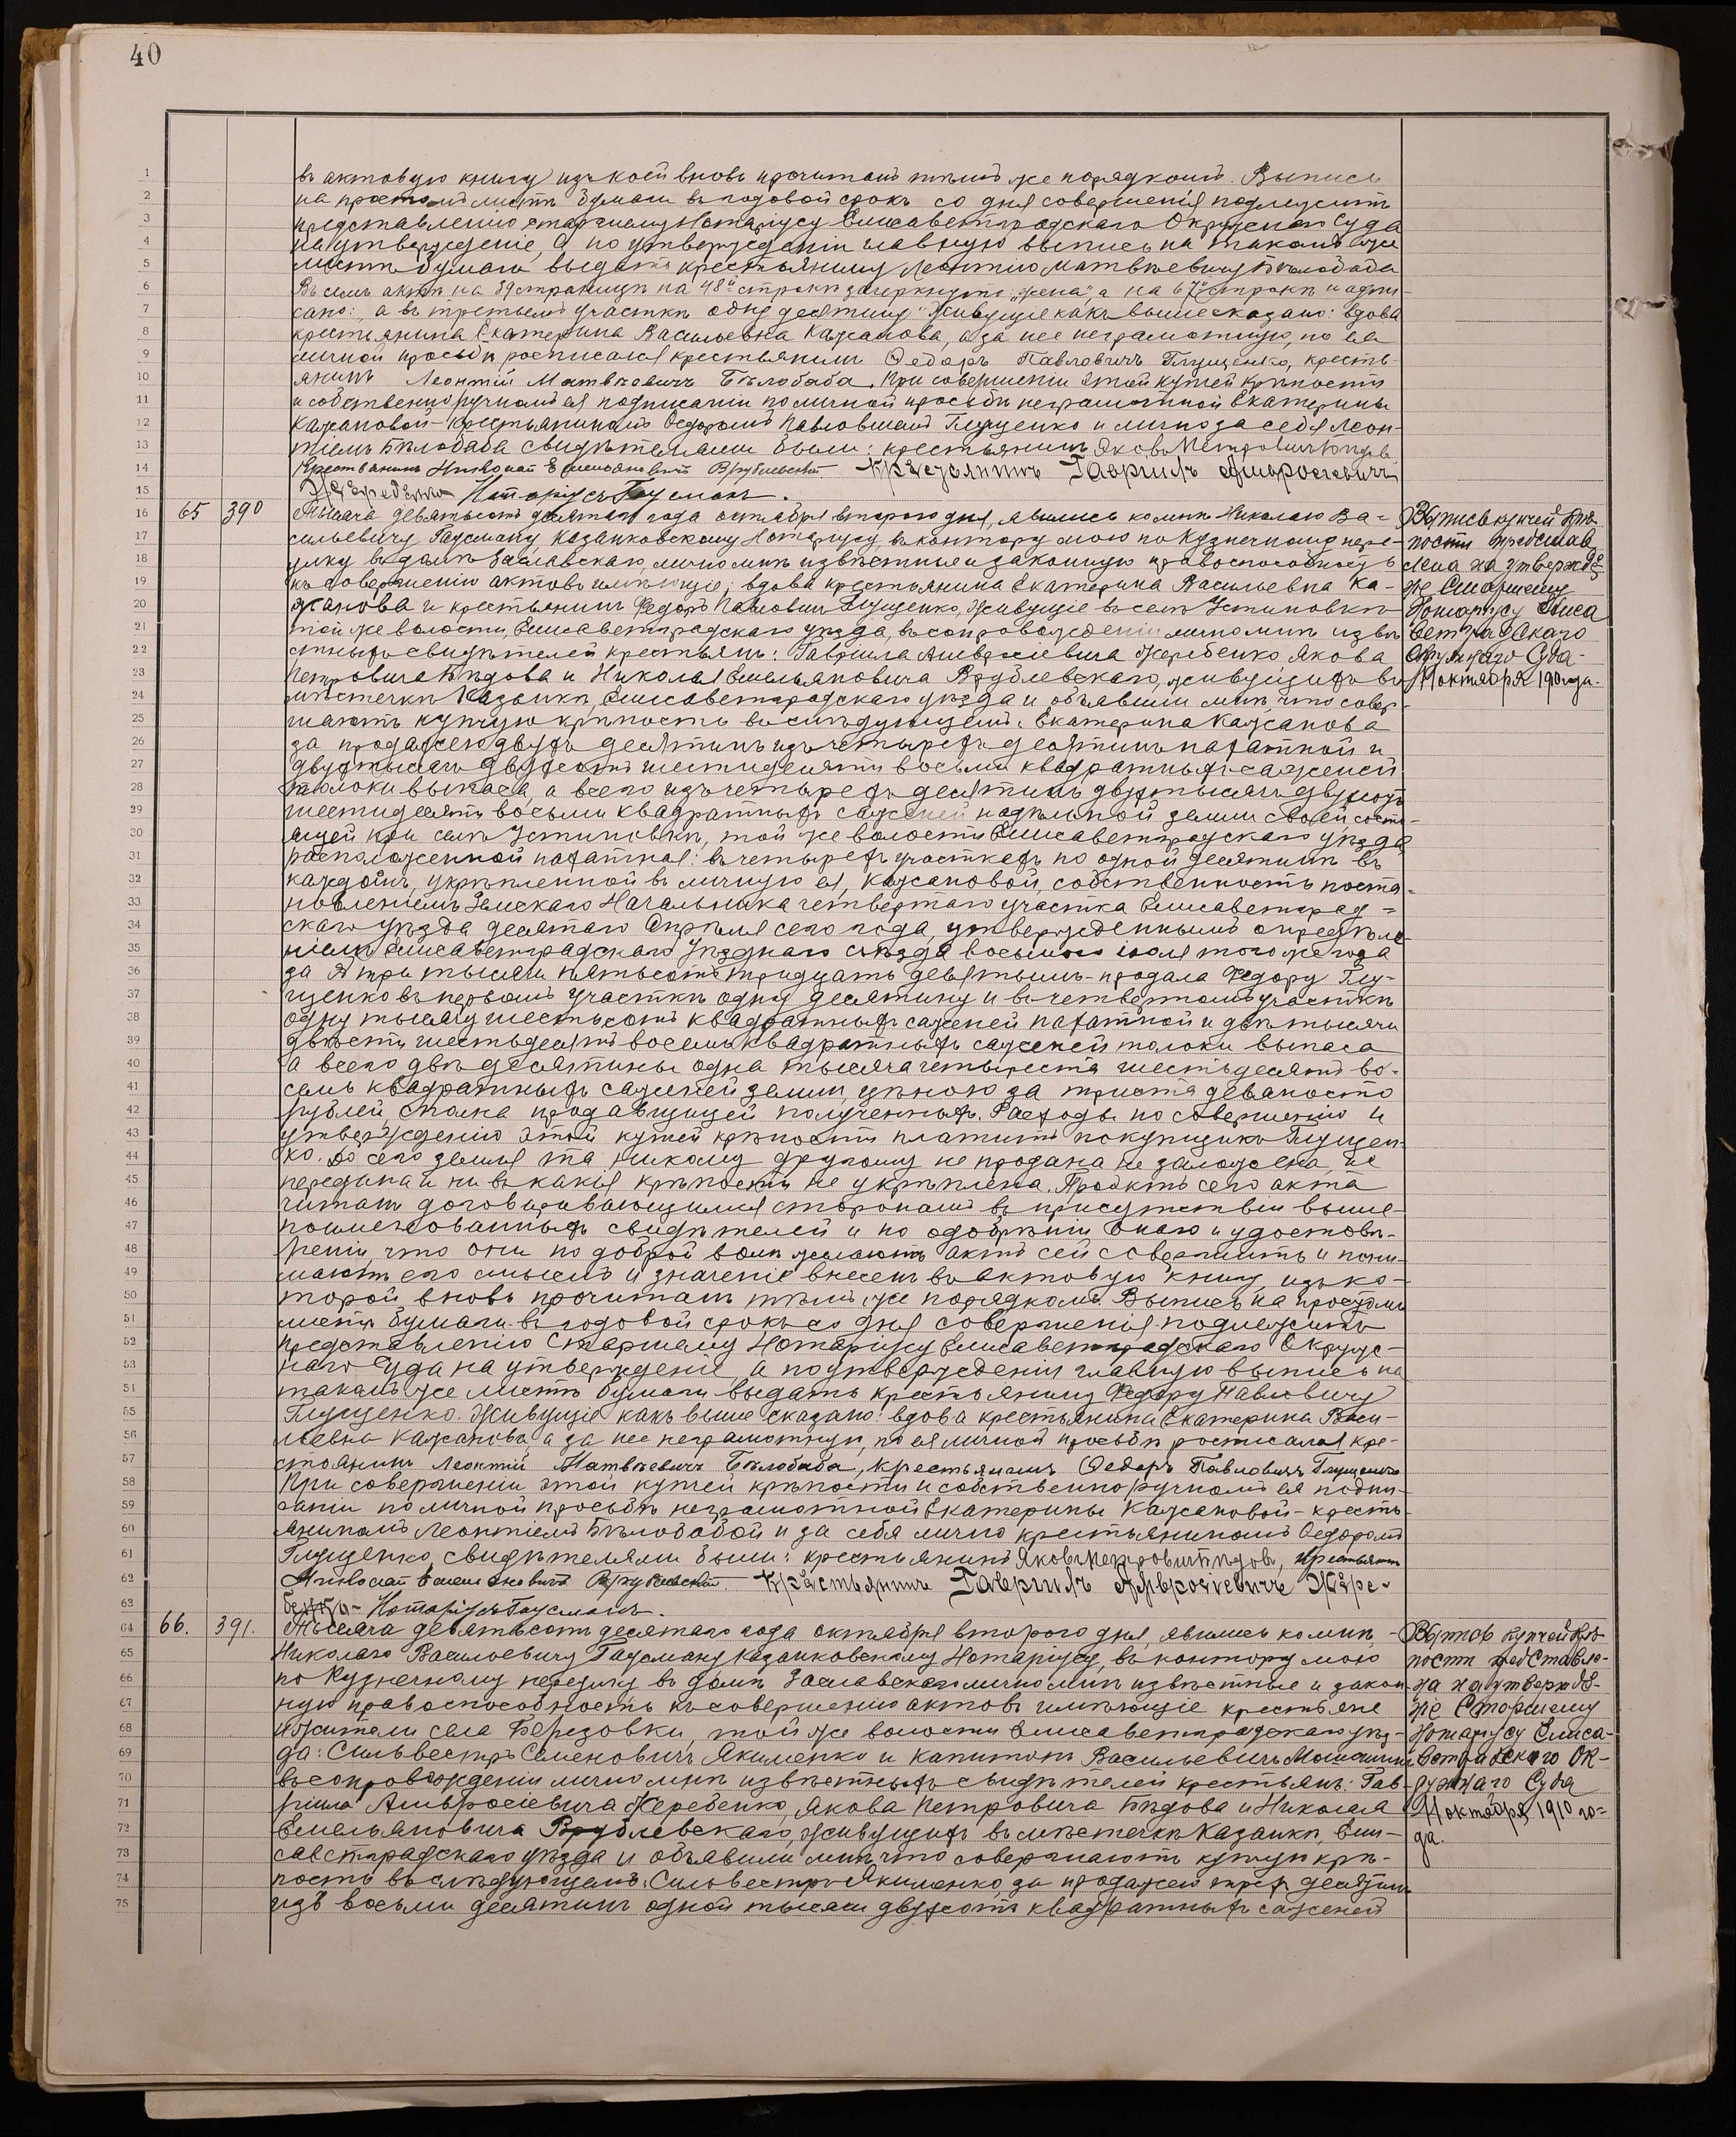 40
въ актовую книгу изъ коей вновь прочитанъ тѣмъ же порядкомъ. Выпись
на простомъ листѣ бумаги въ годовой срокъ со дня совершенія подлежитъ
представленію старшему Нотаріусу Елисаветградскаго Окружнаго Суда
на утвержденіе, а по утвержденіи главную выпись на такомъ же
листѣ бумаги выдать крестьянину Леонтію Матвѣевичу Бѣлобаба
Въ семъ актѣ на 39 страницѣ на 48й строкѣ зачеркнуто: „жена", а на 67й строкѣ и допи-
сано: „а въ третьемъ участкѣ одну десятину" Живущіе какъ выше сказано: вдова
крестьянина Екатерина Васильевна Кажанова, а за нее неграмотную, по ея
личной просьбѣ росписался крестьянинъ Ѳедоръ Павловичъ Глущенко, кресть-
янинъ Леонтій Матвѣевичъ Бѣлобаба. При совершеніи этой купчей крѣпости
и собственноручномъ ея подписаніи по личной просьбѣ неграмотной Екатерины
Кажановой - крестьяниномъ Федоромъ Павловымъ Глущенко и лично за себя Леон-
тіемъ Бѣлобаба свидѣтелями были: крестьянинъ Яковъ Петровичъ Бѣдовъ
Крестьянинъ Николай Емельяновичъ Врублевскій Крестьянинъ Гавриилъ Амвросіевичъ
Жеребенко Нотаріусъ Гаусманъ.
65 390 Тысяча девятьсотъ десятаго года октября второго дня, явились ко мнѣ Николаю Ва-
сильевичу Гаусману Казанковскому Нотаріусу, въ контору мою по Кузнечному пере-
улку въ домѣ Заславскаго, лично мнѣ извѣстные и законную правоспособность
къ совершенію актовъ имѣющіе: вдова крестьянина Екатерина Васильевна Ка-
жанова и крестьянинъ Федоръ Павловичъ Глущенко, живущіе въ селѣ Устиновкѣ
той же волости, Елисаветградскаго уѣзда, въ сопровожденіи лично мнѣ извѣ-
стныхъ свидѣтелей крестьянъ: Гавріила Амвросіевича Жеребенко, Якова
Петровича Бѣдова и Николая Емельяновича Врублевскаго, живущихъ въ
мѣстечкѣ Казанкѣ, Елисаветградскаго уѣзда и объявили мнѣ, что совер-
шаютъ купчую крѣпость въ слѣдующемъ: Екатерина Кажанова
за продажею двухъ десятинъ изъ четырехъ десятинъ пахатной и
двухтысячъ двухсотъ шестидесяти восьми квадратныхъ саженей
толоки выпаса, а всего изъ четырехъ десятинъ двухтысячъ двухсотъ
шестидесяти восьми квадратныхъ саженей надѣльной земли своей состо-
ящей при селѣ Устиновкѣ, той же волости Елисаветградскаго уѣзда
расположенной пахатная: въ четырехъ участкахъ по одной десятинѣ въ
каждомъ, укрѣпленной въ личную ея, Кажановой, собственность поста-
новленіемъ Земскаго Начальника четвертаго участка Елисаветград-
скаго уѣзда десятаго Апрѣля сего года, утвержденнымъ опредѣле-
ніемъ Елисаветградскаго Уѣзднаго съѣзда восьмого іюля того же года
за № три тысячи пятьсотъ тридцать девятымъ - продала Федору Глу-
щенко въ первомъ участкѣ одну десятину и въ четвертомъ участкѣ
одну тысячу шестьсотъ квадратныхъ саженей пахатной и двѣ тысячи
двѣсти шестьдесятъ восемь квадратныхъ саженей толоки выпаса
а всего двѣ десятины одна тысяча четыреста шестьдесятъ во-
семь квадратныхъ саженей земли, цѣною за триста девяносто
рублей сполна продавщицей полученныхъ. Расходы по совершенію и
утвержденію этой купчей крѣпости платитъ покупщикъ Глущен-
ко. До сего земля та никому другому не продана не заложена, не
передана и ни въ какія крѣпости не укрѣплена. Проэктъ сего акта
читанъ договаривающимися сторонами въ присутствіи выше-
поименованныхъ свидѣтелей и по одобреніи онаго и удостовѣ-
реніи, что они по доброй волѣ желаютъ актъ сей совершить и пони-
маютъ его смыслъ и значеніе внесенъ въ актовую книгу, изъ ко-
торой вновь прочитанъ тѣмъ же порядкомъ. Выпись на простомъ
листѣ бумаги въ годовой срокъ со дня совершенія подлежитъ
представленію Старшему Нотаріусу Елисаветградскаго Окруж-
наго Суда на утвержденіе, а по утвержденіи главную выпись на
такомъ же листѣ бумаги выдать крестьянину Федору Павловичу
Глущенко. Живущіе какъ выше сказано: вдова крестьянина Екатерина Васи-
льевна Кажанова, а за нее неграмотную, по ея личной просьбѣ росписался кре-
стьянинъ Леонтій Матвѣевичъ Бѣлобаба, крестьянинъ Ѳедоръ Павловичъ Глущенко
При совершеніи этой купчей крѣпости и собственноручномъ ея подпи-
саніи по личной просьбѣ неграмотной Екатерины Кажановой - кресть-
яниномъ Леонтіемъ Бѣлобабой и за себя лично крестьяниномъ Федоромъ
Глущенко, свидѣтелями были: крестьянинъ Яковъ Петровичъ Бѣдовъ, крестьянинъ
Николай Емельяновичъ Врублевскій Крестьянинъ Гавриилъ Амвросіевичъ Жере-
бенко - Нотаріусъ Гаусманъ.
Выпись купчей крѣ-
пости представ-
лена на утвержде-
ніе Старшему
Нотаріусу Елиса-
ветградскаго
Окружнаго Суда
11 октября 1910 года.
66. 391. Тысяча девятьсотъ десятаго года октября второго дня, явились ко мнѣ,
Николаю Васильевичу Гаусману Казанковскому Нотаріусу, въ контору мою
по Кузнечному переулку въ домѣ Заславскаго лично мнѣ извѣстные и закон-
ную правоспособность къ совершенію актовъ имѣющіе крестьяне
жители села Березовки, той же волости Елисаветградскаго уѣз-
да: Сильвестръ Семеновичъ Якименко и Капитонъ Васильевичъ
въ сопровожденіи лично мнѣ извѣстныхъ свидѣтелей крестьянъ: Гав-
ріила Амвросіевича Жеребенко, Якова Петровича Бѣдова и Николая
Емельяновича Врублевскаго, живущихъ въ мѣстечкѣ Казанкѣ, Ели-
саветградскаго уѣзда и объявили мнѣ что совершаютъ купчую крѣ-
пость въ слѣдующемъ: Сильвестръ Якименко, за продажей трехъ десятинъ
изъ восьми десятинъ одной тысячи двухсотъ квадратныхъ саженей
Выпись купчей крѣ-
пости представле-
на на утвержде-
ніе Старшему
Нотаріусу Елиса-
ветградскаго Ок-
ружнаго Суда
11 октября 1910 го-
да.